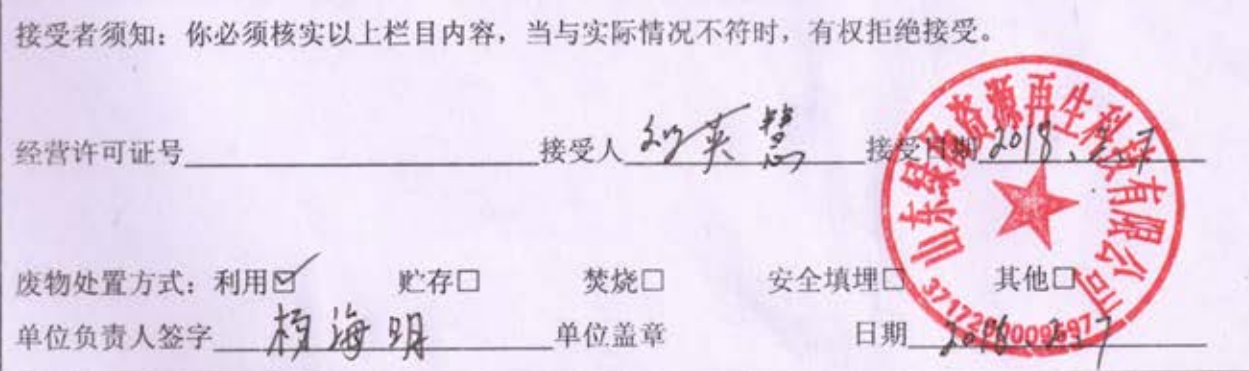 接受者须知：你必须核实以上栏目内容，当与实际情况不符时，有权拒绝接受。
经营许可证号 接受人 刘英慧 接受日期 2018.2.7
废物处置方式：利用☑ 贮存☐ 焚烧☐ 安全填埋☐ 其他☐
单位负责人签字 海明 单位盖章 日期 2018.2.7
山东绿 资源再生科技有限公司